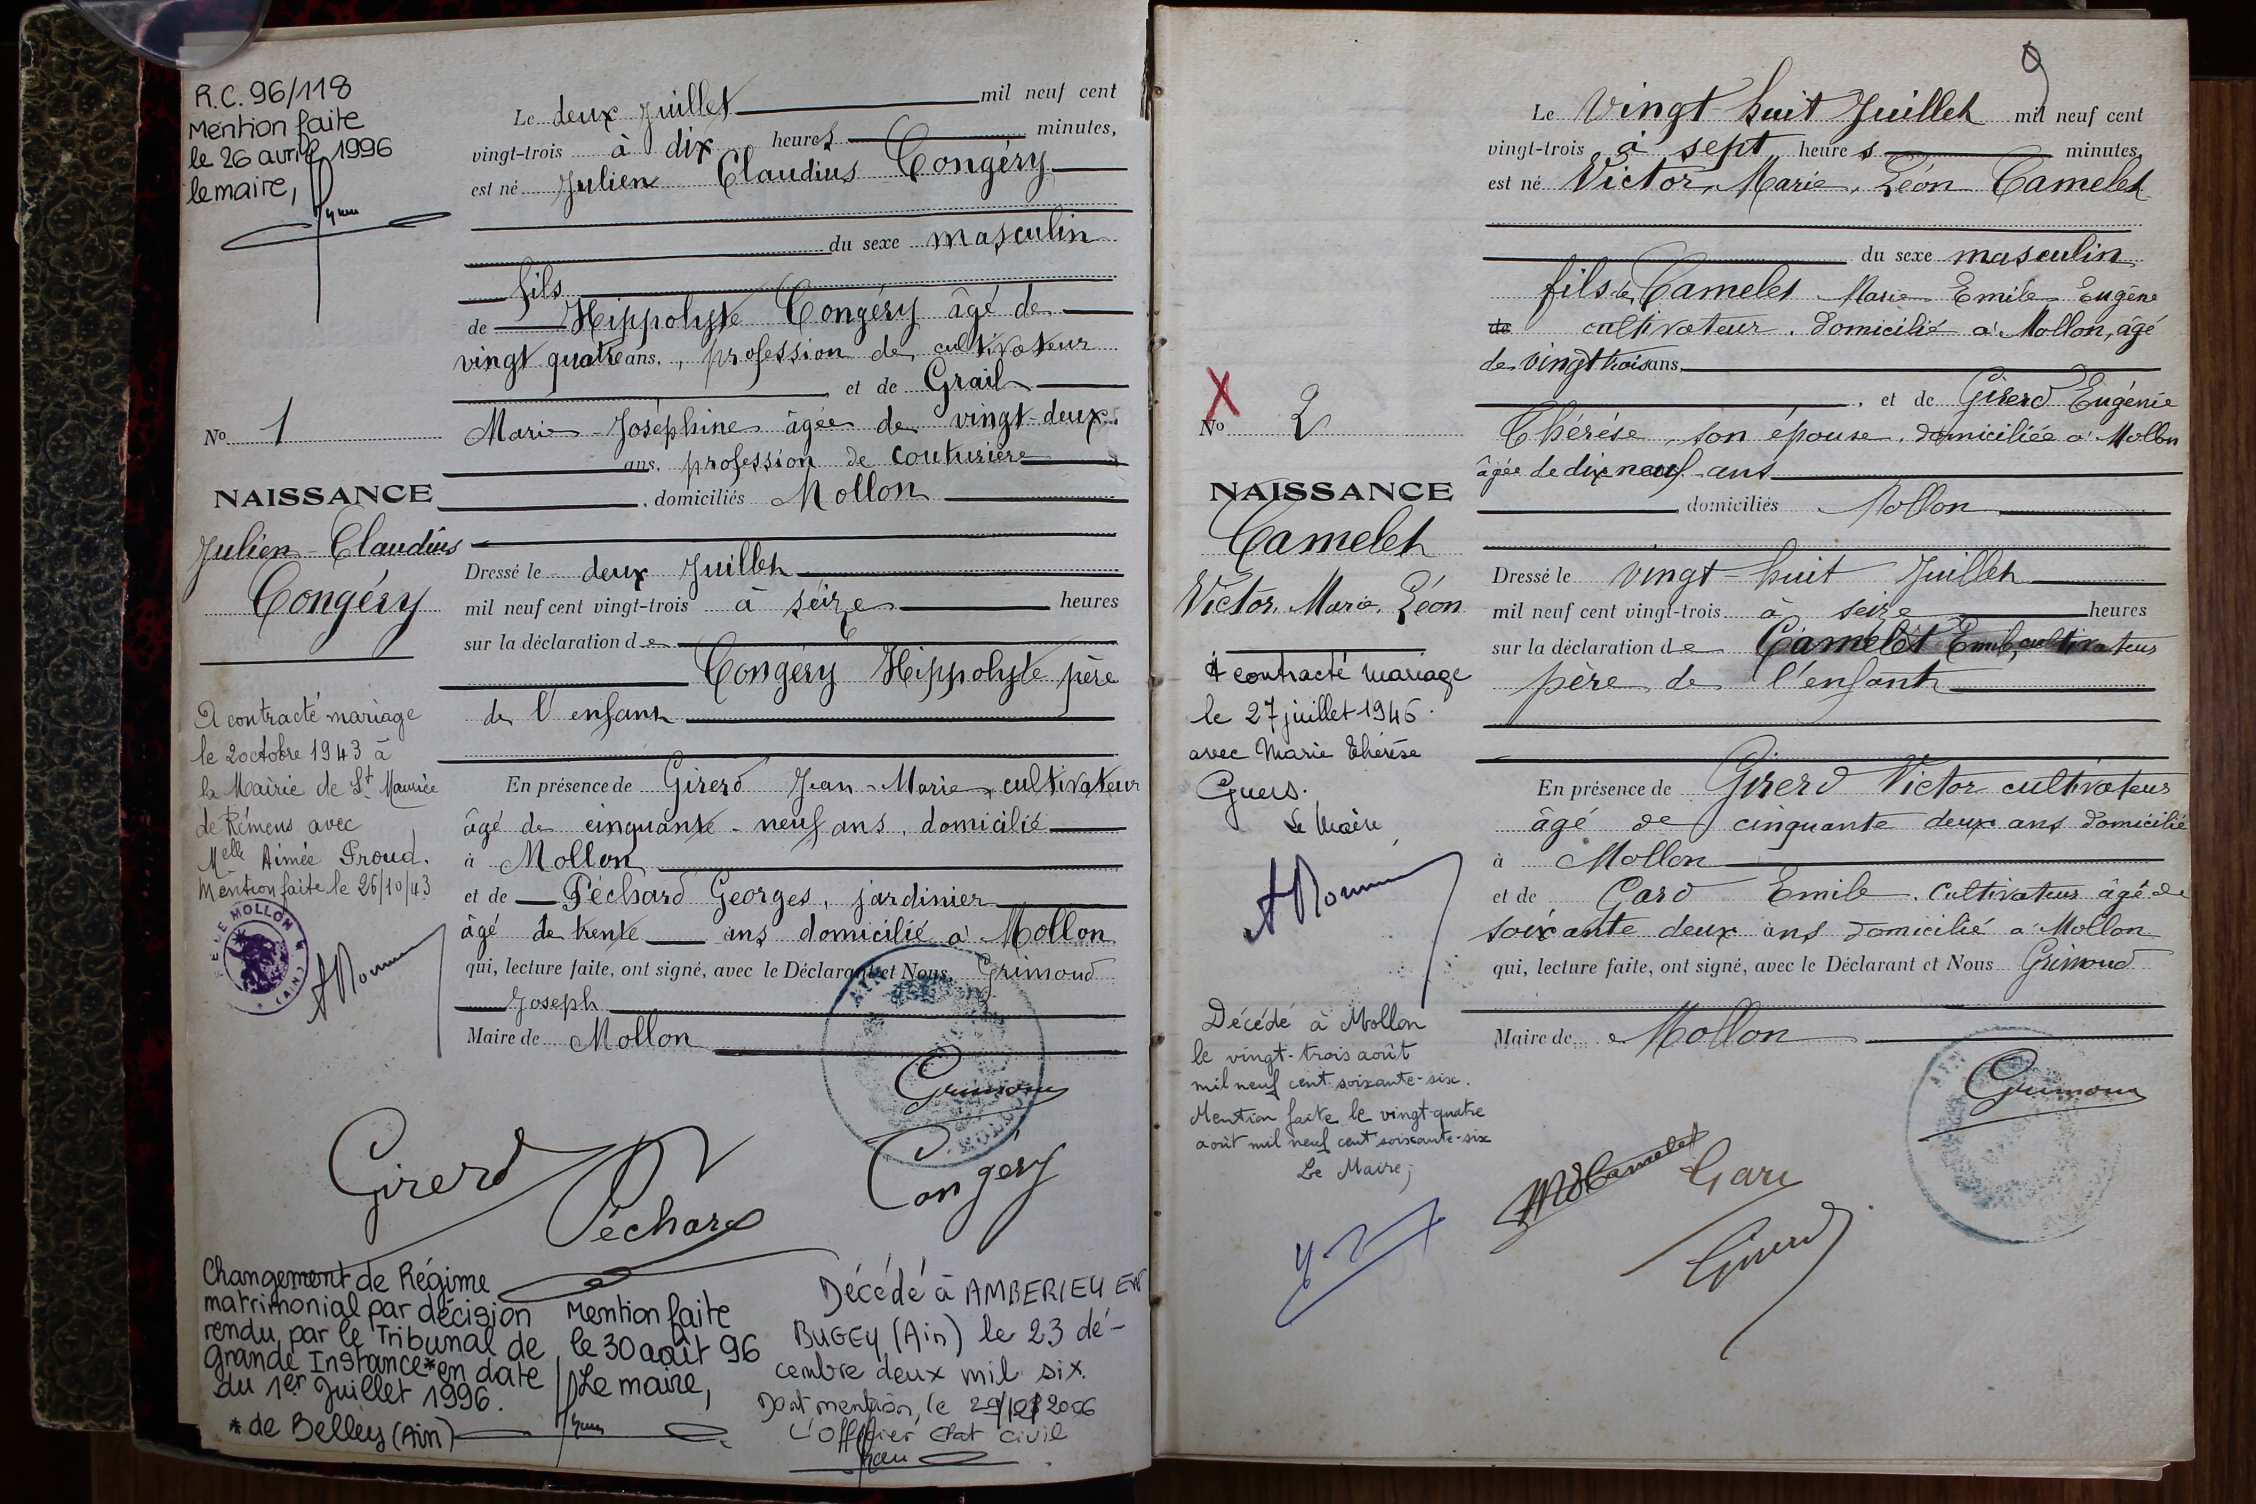 R.C. 96/118
Mention faite
le 26 avril 1996
le maire,
Le deux Juillet mil neuf cent
vingt-trois à dix heures minutes,
est né Julien Claudius Congéry
du sexe masculin
fils
de Hippolyte Congéry âgé de
vingt quatre ans, profession de cultivateur
et de Grail
Marie-Joséphine âgée de vingt-deux
ans, profession de couturière
domiciliés Mollon
No 1
NAISSANCE
Julien-Claudius
Congéry
Dressé le deux Juillet
mil neuf cent vingt-trois à seize heures
sur la déclaration de
Congéry Hippolyte père
de l'enfant
En présence de Girerd Jean-Marie, cultivateur
âgé de cinquante-neuf ans, domicilié
à Mollon
et de Péchard Georges, jardinier
âgé de trente ans domicilié à Mollon
qui, lecture faite, ont signé, avec le Déclarant et Nous Grimoud
Joseph
Maire de Mollon
A contracté mariage
le 2 octobre 1943 à
la Mairie de St Maurice
de Rémens avec
Melle Aimée Froud.
Mention faite le 26/10/43
DE MOLLON
(AIN)
AIN
MOLLON
Grimoud
Girerd
Péchard
Congéry
Changement de Régime
matrimonial par décision
rendu par le Tribunal de
Grande Instance*en date
du 1er Juillet 1996.
* de Belley (Ain)
Mention faite
le 30 août 96
Le maire,
Décédé à AMBERIEU EN
BUGEY (Ain) le 23 dé-
cembre deux mil six.
Dont mention, le 2006
L'Officier Etat civil
9
Le Vingt huit Juillet mil neuf cent
vingt-trois à sept heures minutes,
est né Victor, Marie, Léon Camelet
du sexe masculin
fils de Camelet Marie Emile Eugène
de cultivateur, domicilié à Mollon, âgé
de vingt trois ans
, et de Girerd Eugénie
Thérése, son épouse, domiciliée à Mollon
âgée de dix neuf ans
domiciliés Mollon
X
No 2
NAISSANCE
Camelet
Victor, Marie, Léon
Dressé le vingt-huit Juillet
mil neuf cent vingt-trois à seize heures
sur la déclaration de Camelet Emile, cultivateur
père de l'enfant
En présence de Girerd Victor cultivateur
âgé de cinquante deux ans domicilié
à Mollon
et de Gard Emile, cultivateur âgé de
soixante deux ans domicilié à Mollon
qui, lecture faite, ont signé, avec le Déclarant et Nous Grimoud
Maire de Mollon
A contracté mariage
le 27 juillet 1946.
avec Marie Thérèse
Guers.
Le Maire
Décédé à Mollon
le vingt-trois août
mil neuf cent soixante-six.
Mention faite le vingt-quatre
août mil neuf cent soixante-six
Le Maire,
AIN
Grimoud
Camelet
Gard
Girerd